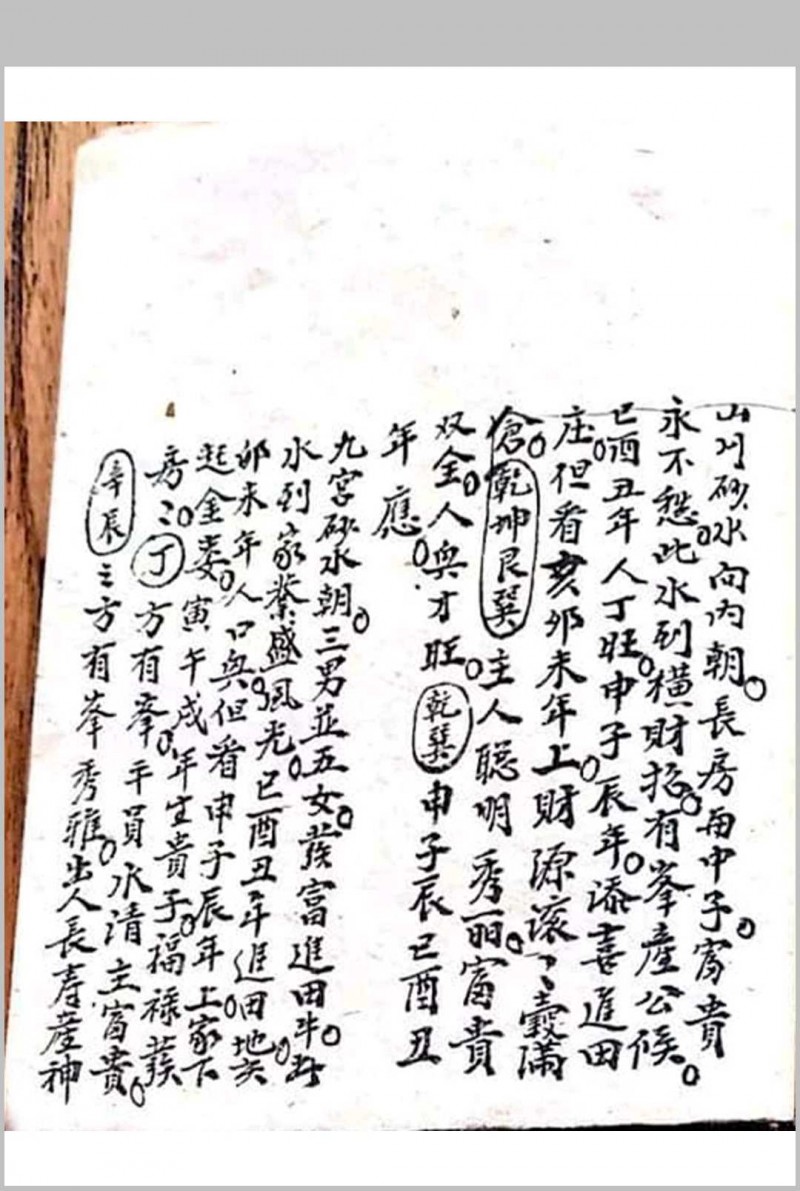 山川砂水向内朝。長房每甲子富貴
永不愁。此水到横財招。有峯産公候。
巳酉丑年人丁旺。申子辰年。添喜進田
庄。但看亥卯未年上。財源滚〻穀滿
倉。乾坤艮巽主人聪明秀丽。富貴
双全。人與才旺。乾巽申子辰巳酉丑
年應。
九宫砂水朝。三男並五女。發富進田牛。
水到家業盛風光。巳酉丑年進田地。亥
卯未年人口與但看申子辰年上家下
起金娄。寅午戌年生貴子。福禄發
房〻。丁方有峯。平員水清主富貴。
辛辰三方有峯秀雅。出人長寿産神